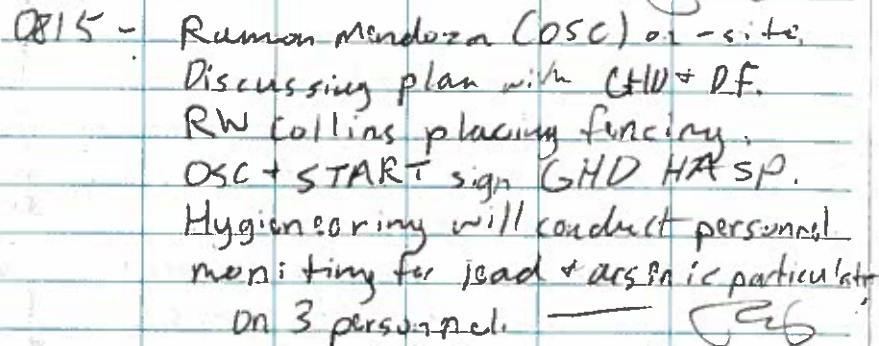 0815 - Ramon Mendoza (OSC) on-site.
Discussing plan with GHD + DF.
RW Collins placing fencing.
OSC + START sign GHD HASP.
Hygieneering will conduct personnel
moniting for lead + arsenic particulate
on 3 personnel.